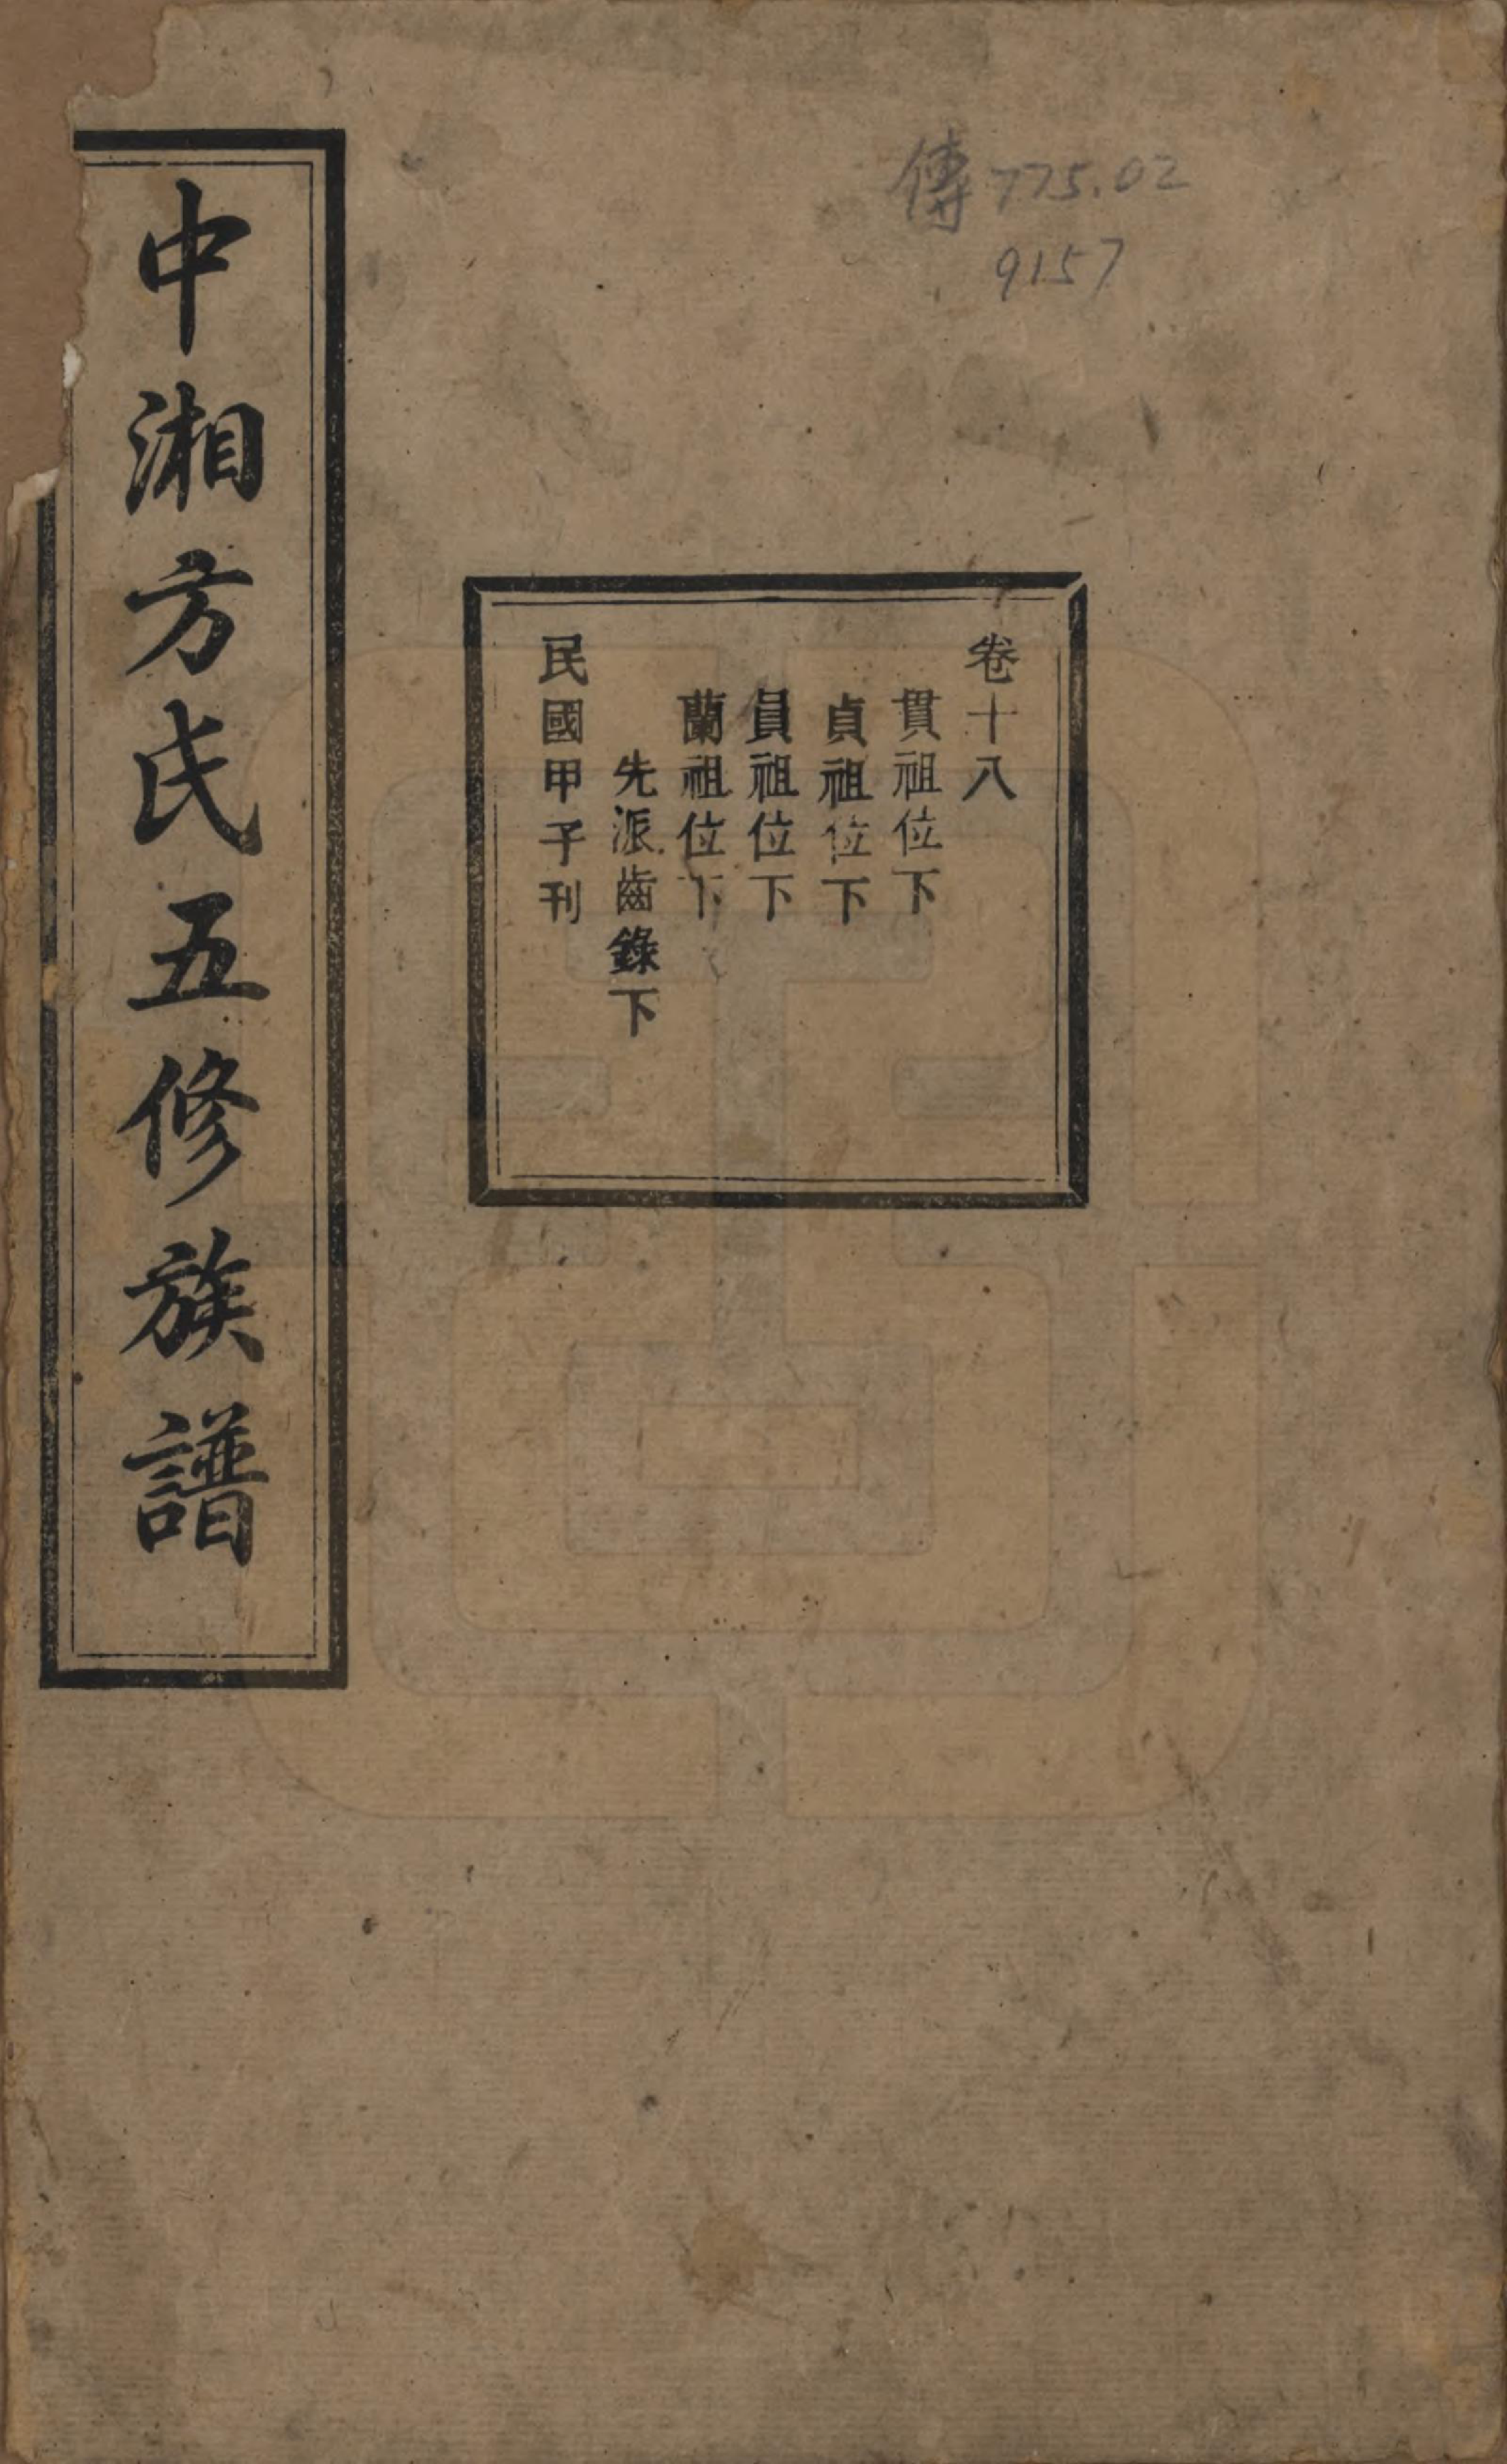 傳 775.02
9157
卷十八
貫祖位下
貞祖位下
員祖位下
蘭祖位下
先派齒錄下
民國甲子刊
中湘方氏五修族譜